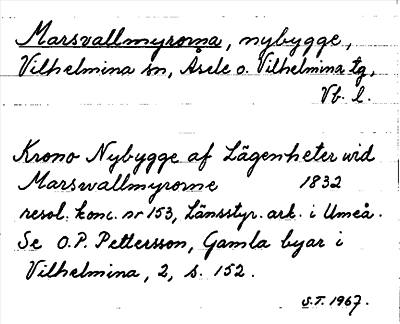 Marsvallmyrorna, nybygge,
Vilhelmina sn, Åsele o. Vilhelmina tg,
Vb. l.
Krono Nybygge af Lägenheter wid
Marswallmyrorne 1832
resol. konc. nr 153, Länsstyr. ark. i Umeå.
Se O.P. Pettersson, Gamla byar i
Vilhelmina, 2, s. 152.
S.T. 1967.